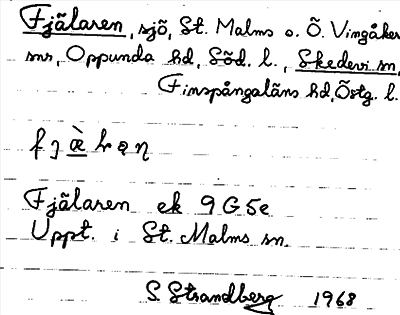 Fjälaren, sjö, St. Malms o. Ö. Vingåker
snr, Oppunda hd, Söd. l., Skedevi sn,
Finspångaläns hd, Östg. l.
Fjälaren ek 9G5e
Uppt. i St. Malms sn.
S. Strandberg 1968